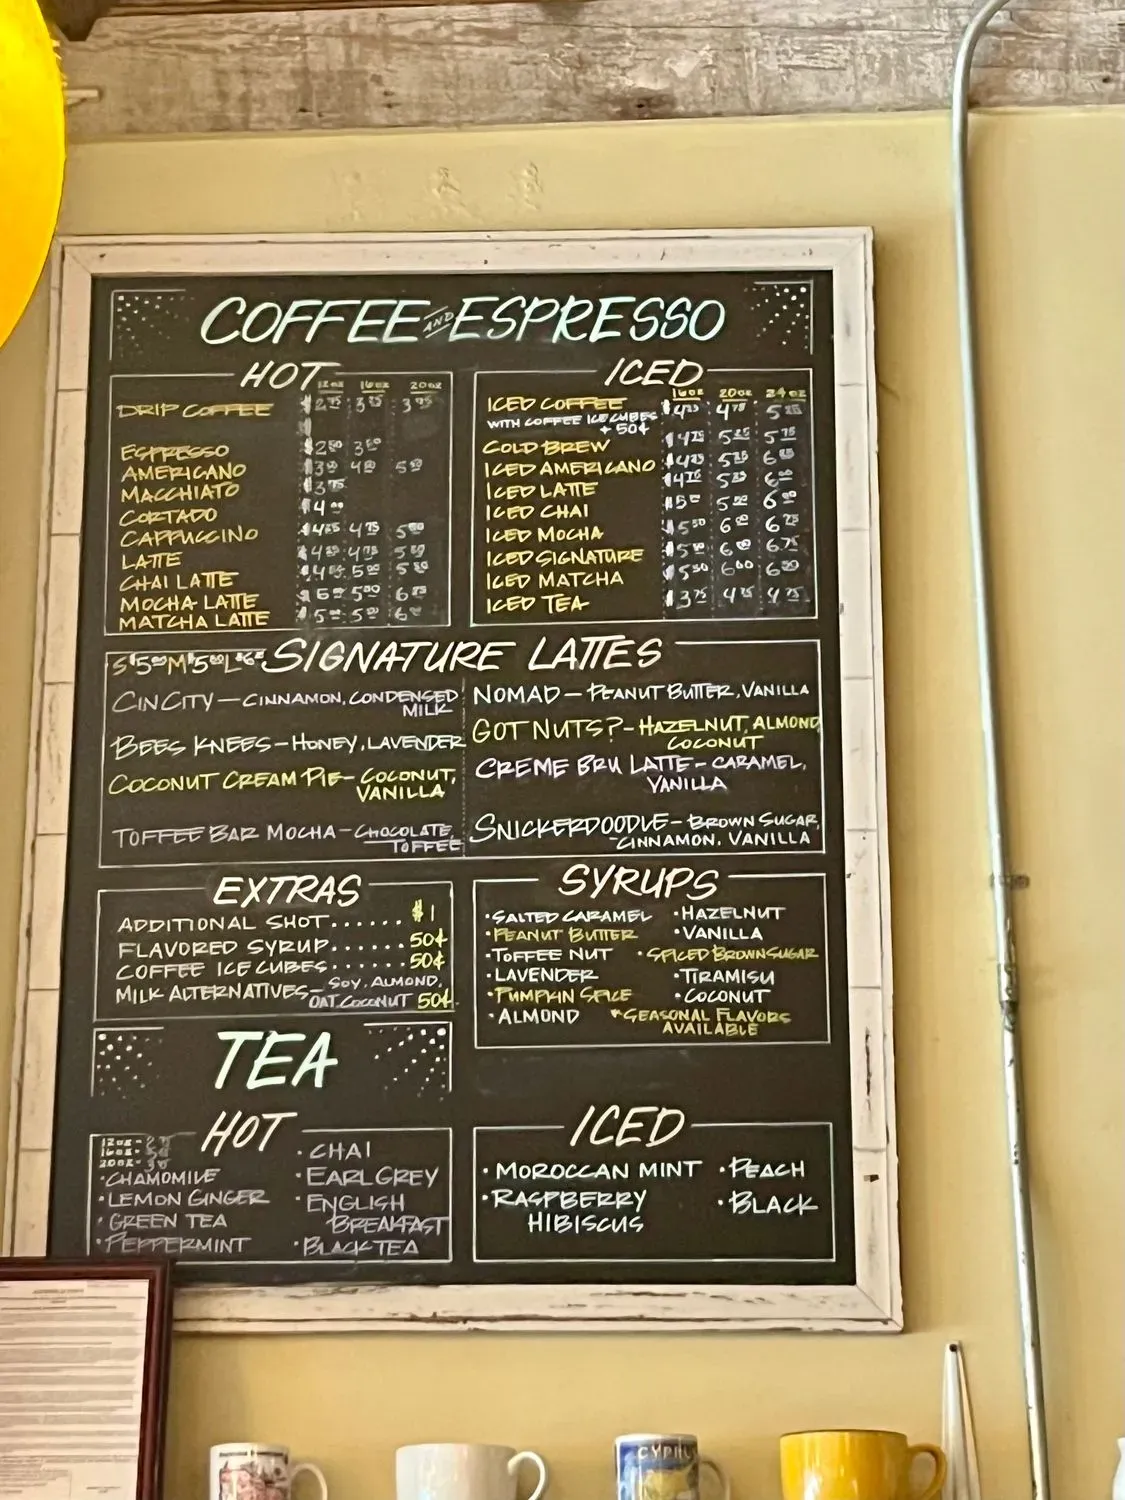 COFFEE AND ESPRESSO
HOT
12oz 16oz 20oz
DRIP COFFEE $2.75 3.25 3.75
ESPRESSO $2.50 3.50
AMERICANO
MACCHIATO $3.75
CORTADO $4.00
CAPPUCCINO 4.75
LATTE 4.75
CHAI LATTE
MOCHA LATTE
MATCHA LATTE
ICED
16oz 20oz 24oz
ICED COFFEE 4.75 5.25
WITH COFFEE ICE CUBES
+ 50¢
COLD BREW $4.75 5.25 5.75
ICED AMERICANO
ICED LATTE
ICED CHAI
ICED MOCHA $5.50
ICED SIGNATURE 6.75
ICED MATCHA $5.50 6.00
ICED TEA $3.75 4.25 4.75
SIGNATURE LATTES
CIN CITY - CINNAMON, CONDENSED
MILK
BEES KNEES - HONEY, LAVENDER
COCONUT CREAM PIE - COCONUT,
VANILLA
TOFFEE BAR MOCHA - CHOCOLATE,
TOFFEE
NOMAD - PEANUT BUTTER, VANILLA
GOT NUTS? - HAZELNUT, ALMOND,
COCONUT
CREME BRU LATTE - CARAMEL,
VANILLA
SNICKERDOODLE - BROWN SUGAR,
CINNAMON, VANILLA
EXTRAS
ADDITIONAL SHOT...... $1
FLAVORED SYRUP...... 50¢
COFFEE ICE CUBES...... 50¢
MILK ALTERNATIVES - SOY, ALMOND,
OAT, COCONUT 50¢
SYRUPS
• SALTED CARAMEL • HAZELNUT
• PEANUT BUTTER • VANILLA
• TOFFEE NUT • SPICED BROWN SUGAR
• LAVENDER • TIRAMISU
• PUMPKIN SPICE • COCONUT
• ALMOND *SEASONAL FLAVORS
AVAILABLE
TEA
HOT
12oz-
16oz-
20oz-
• CHAMOMILE
• LEMON GINGER
• GREEN TEA
• PEPPERMINT
• CHAI
• EARL GREY
• ENGLISH
BREAKFAST
• BLACK TEA
ICED
• MOROCCAN MINT • PEACH
• RASPBERRY • BLACK
HIBISCUS
CYPRUS